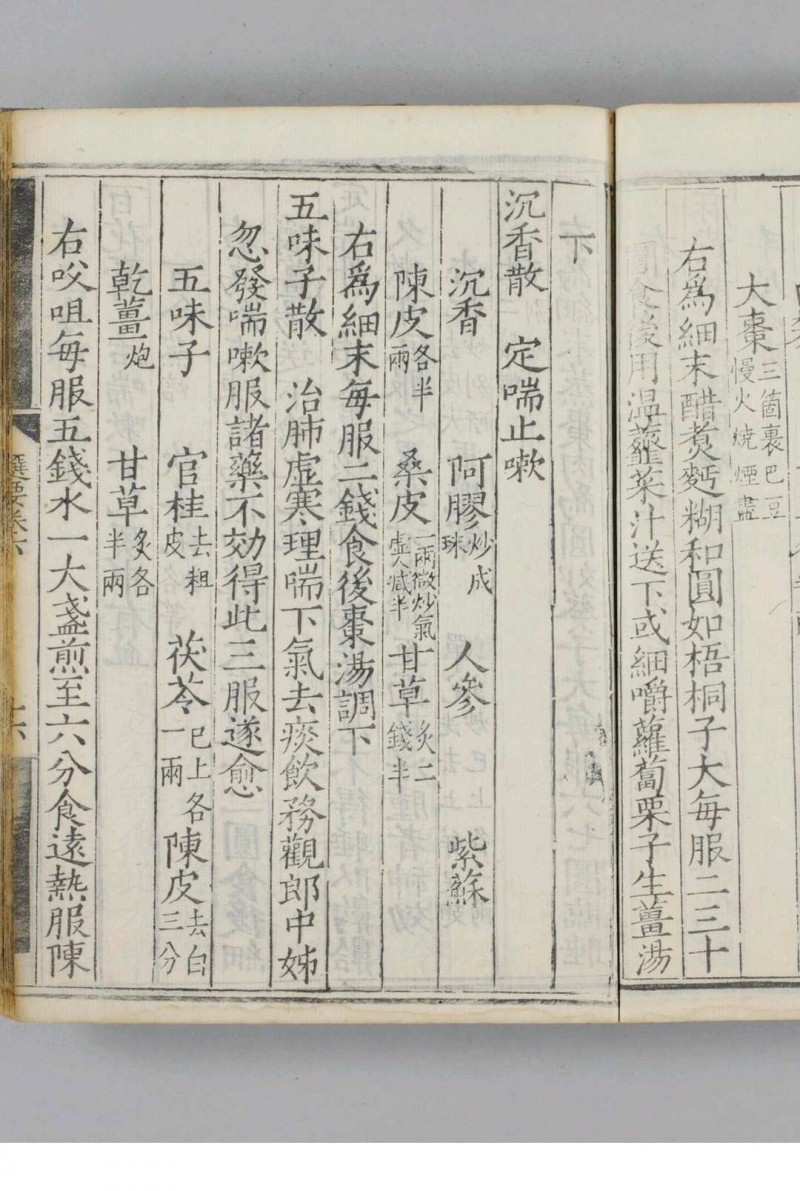 大棗三箇裹巴豆慢火燒煙盡
右爲細末醋煑麫糊和圓如梧桐子大每服二三十
食後用温虀菜汁送下或細嚼蘿蔔栗子生薑湯
下
沉香散 定喘止嗽
沉香 阿膠炒成珠 人參 紫蘇
陳皮各半兩 桑皮一兩微炒氣虛人减半 甘草炙二錢半
右爲細末每服二錢食後棗湯調下
五味子散 治肺虛寒理喘下氣去痰飲務觀郎中姊
忽發喘嗽服諸藥不効得此三服遂愈
五味子 官桂去粗皮 茯苓已上各一兩 陳皮去白三分
乾薑炮 甘草炙各半兩
右㕮咀每服五錢水一大盞煎至六分食遠熱服陳
選要卷六